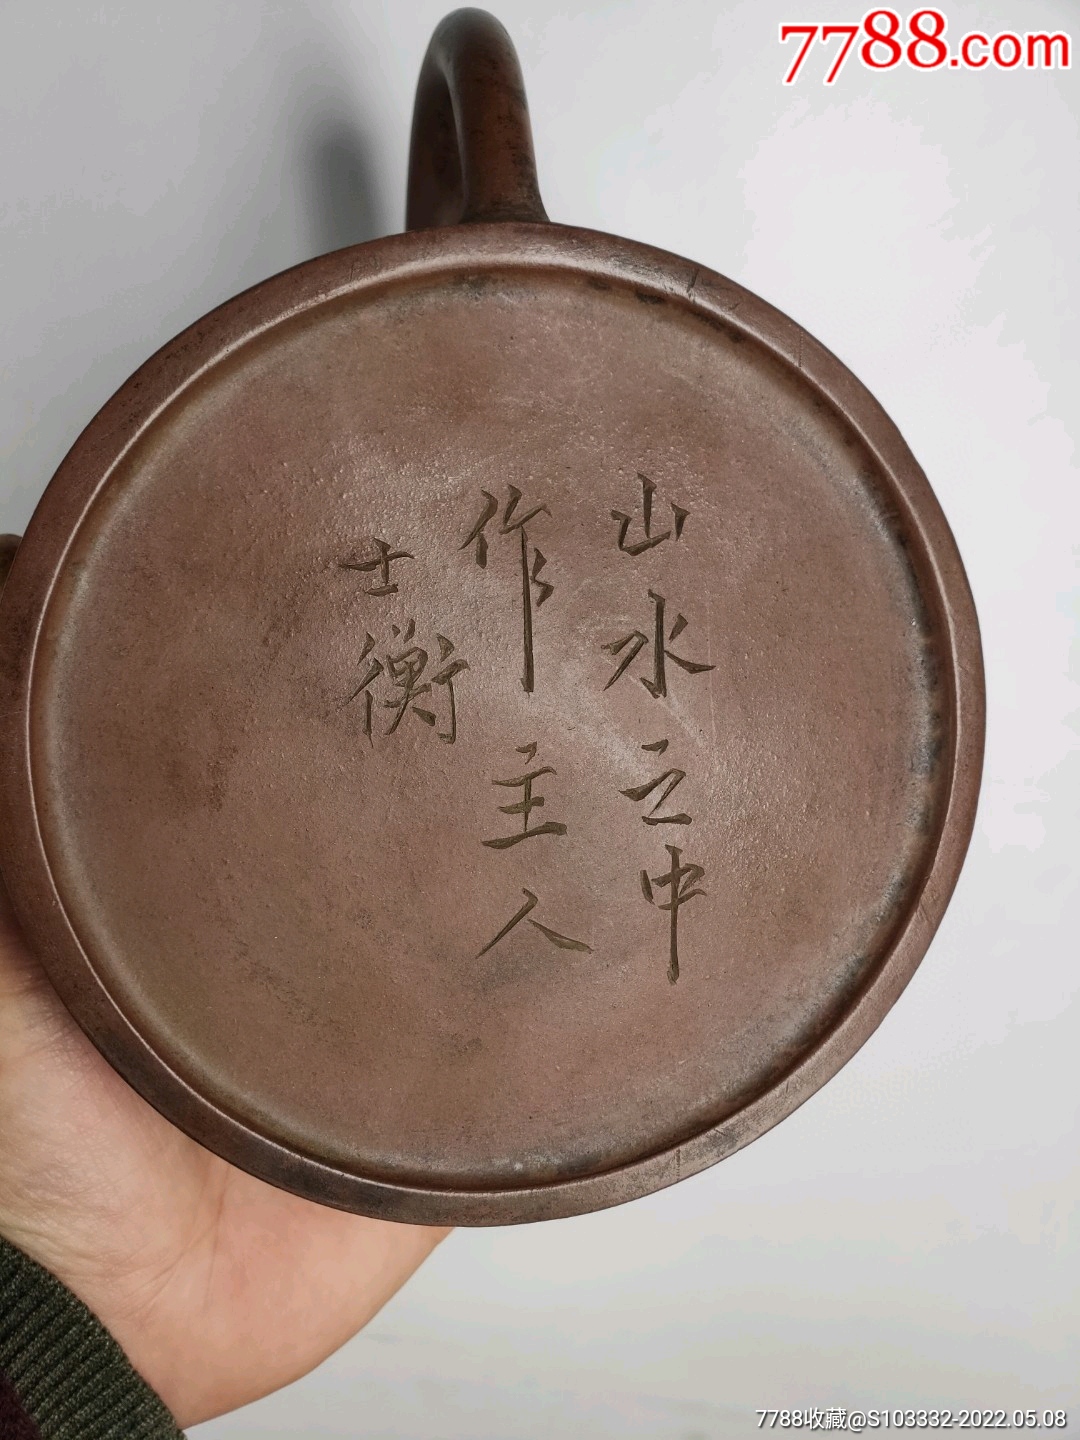 7788.com
山水之中
作主人
士衡
7788收藏@S103332-2022.05.08